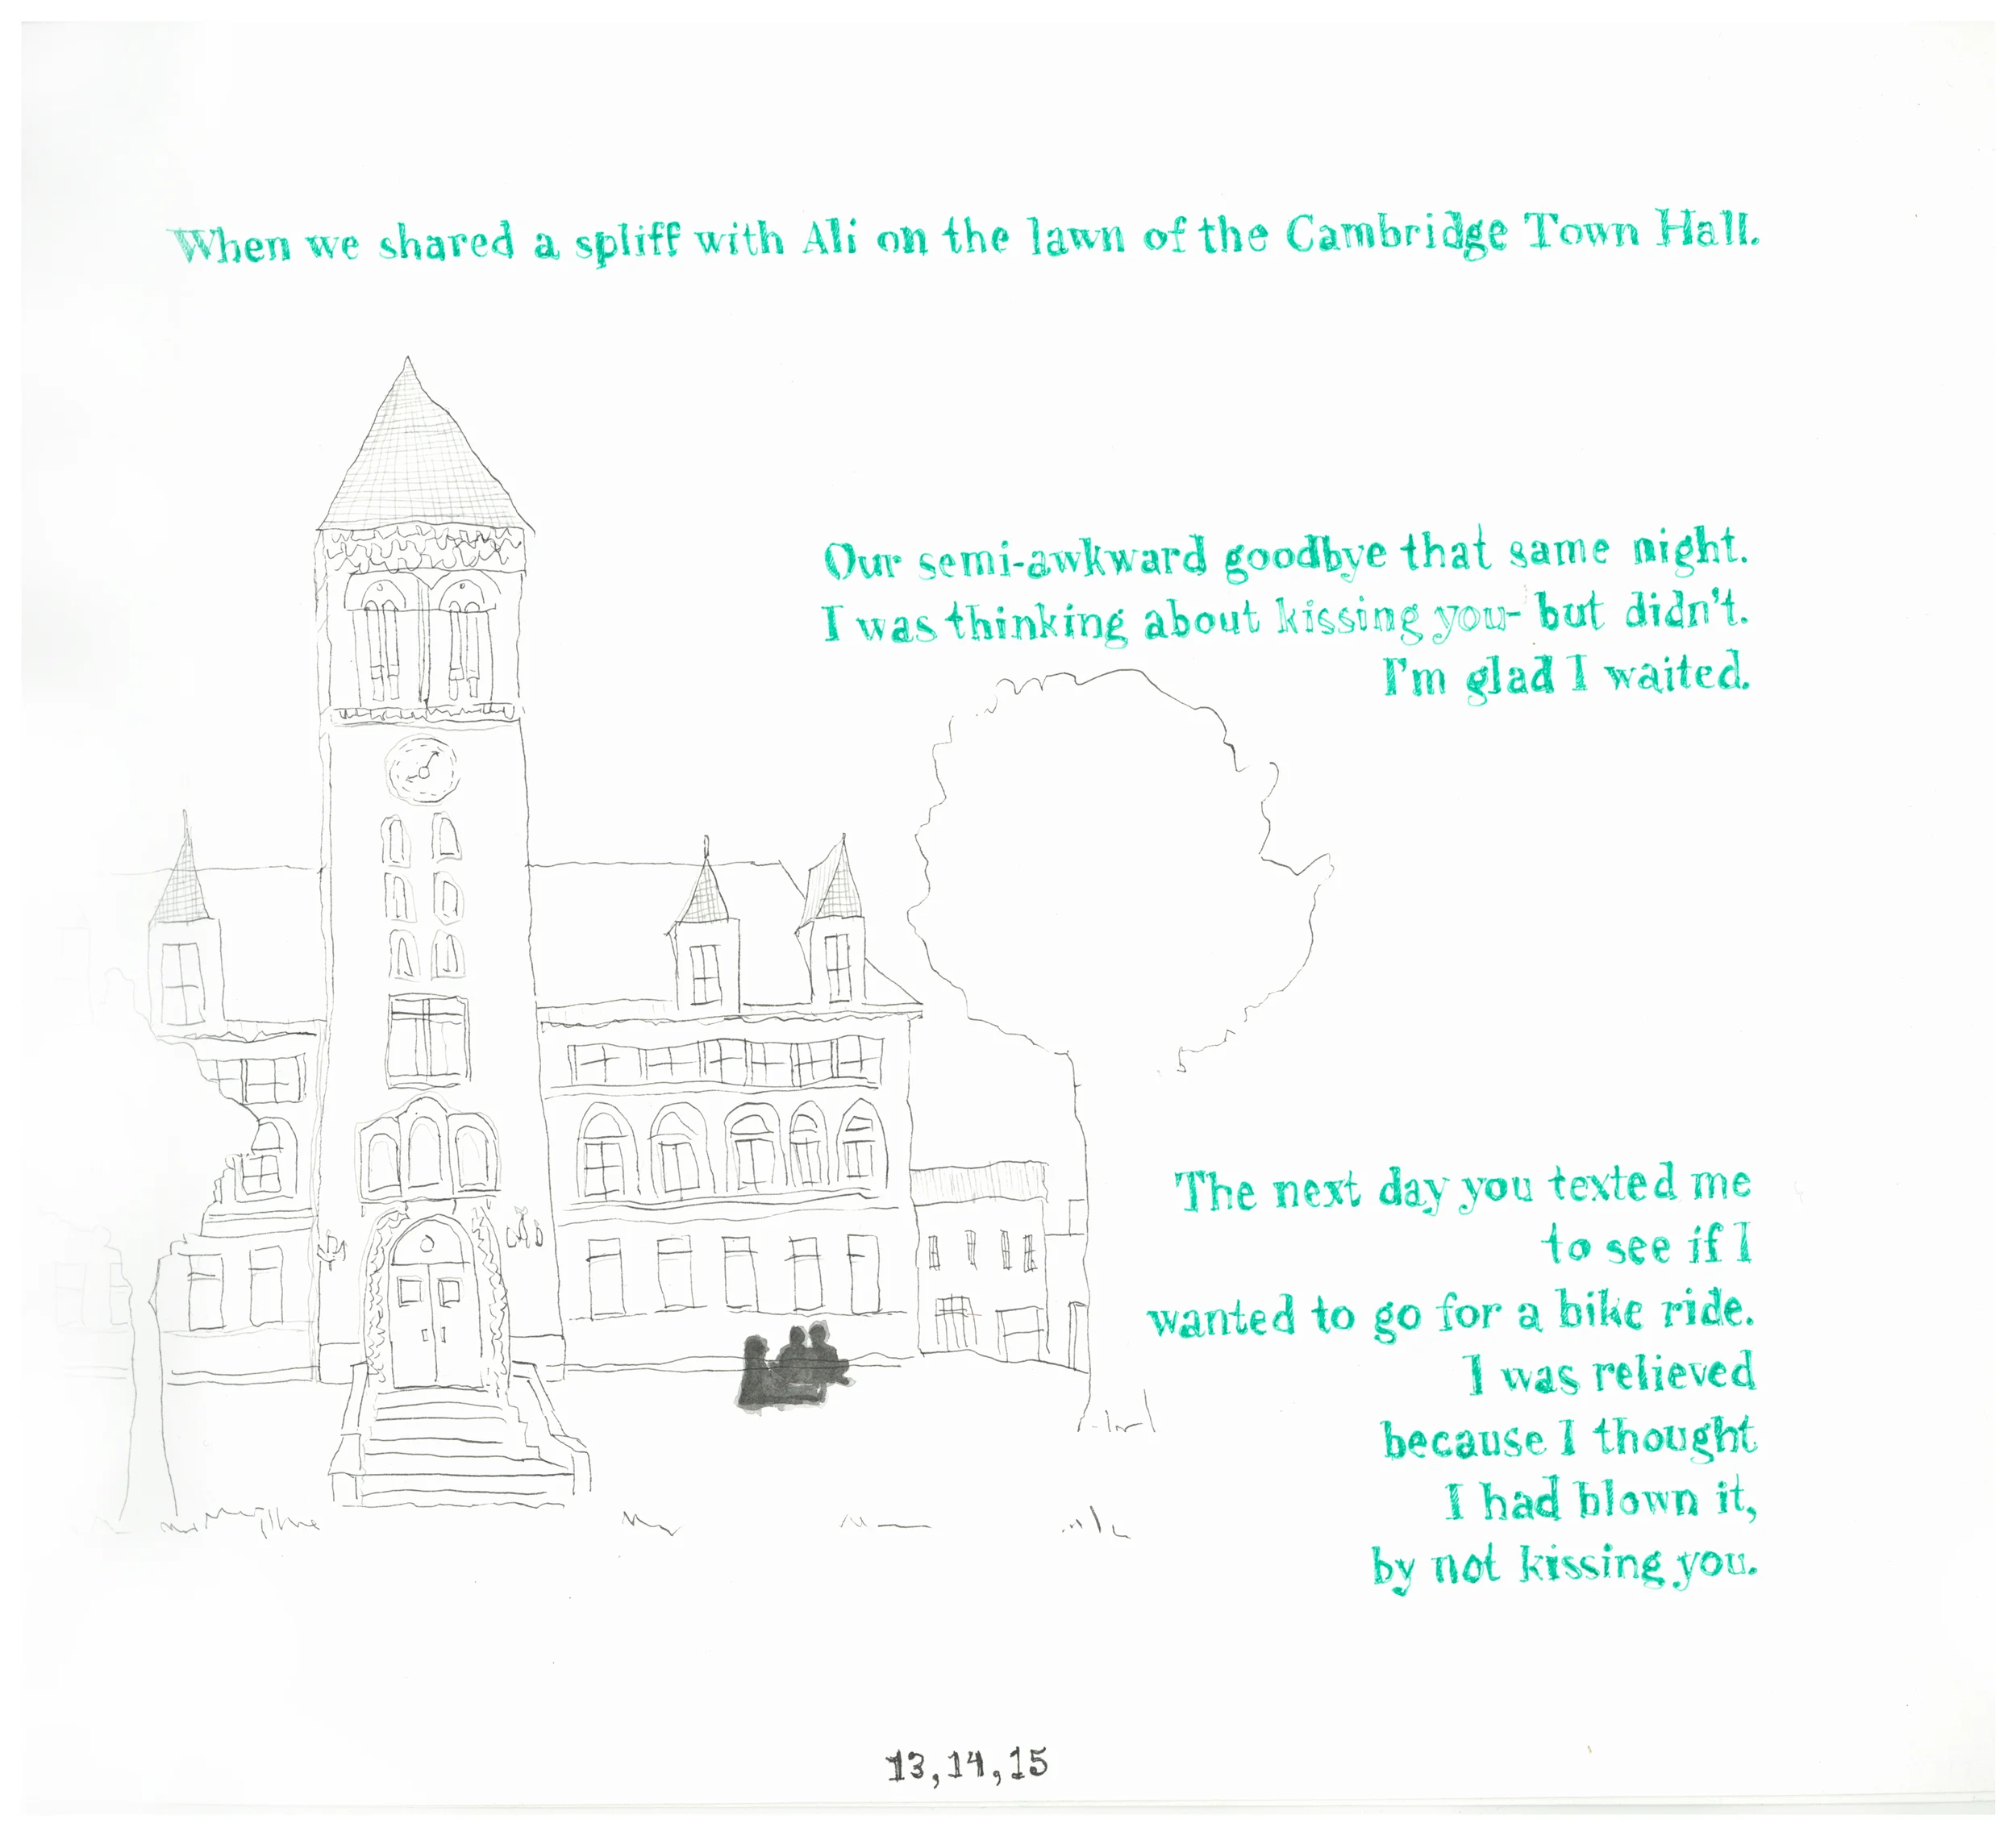 When we shared a spliff with Ali on the lawn of the Cambridge Town Hall.
Our semi-awkward goodbye that same night.
I was thinking about kissing you- but didn't.
I'm glad I waited.
The next day you texted me
to see if I
wanted to go for a bike ride.
I was relieved
because I thought
I had blown it,
by not kissing you.
13,14,15